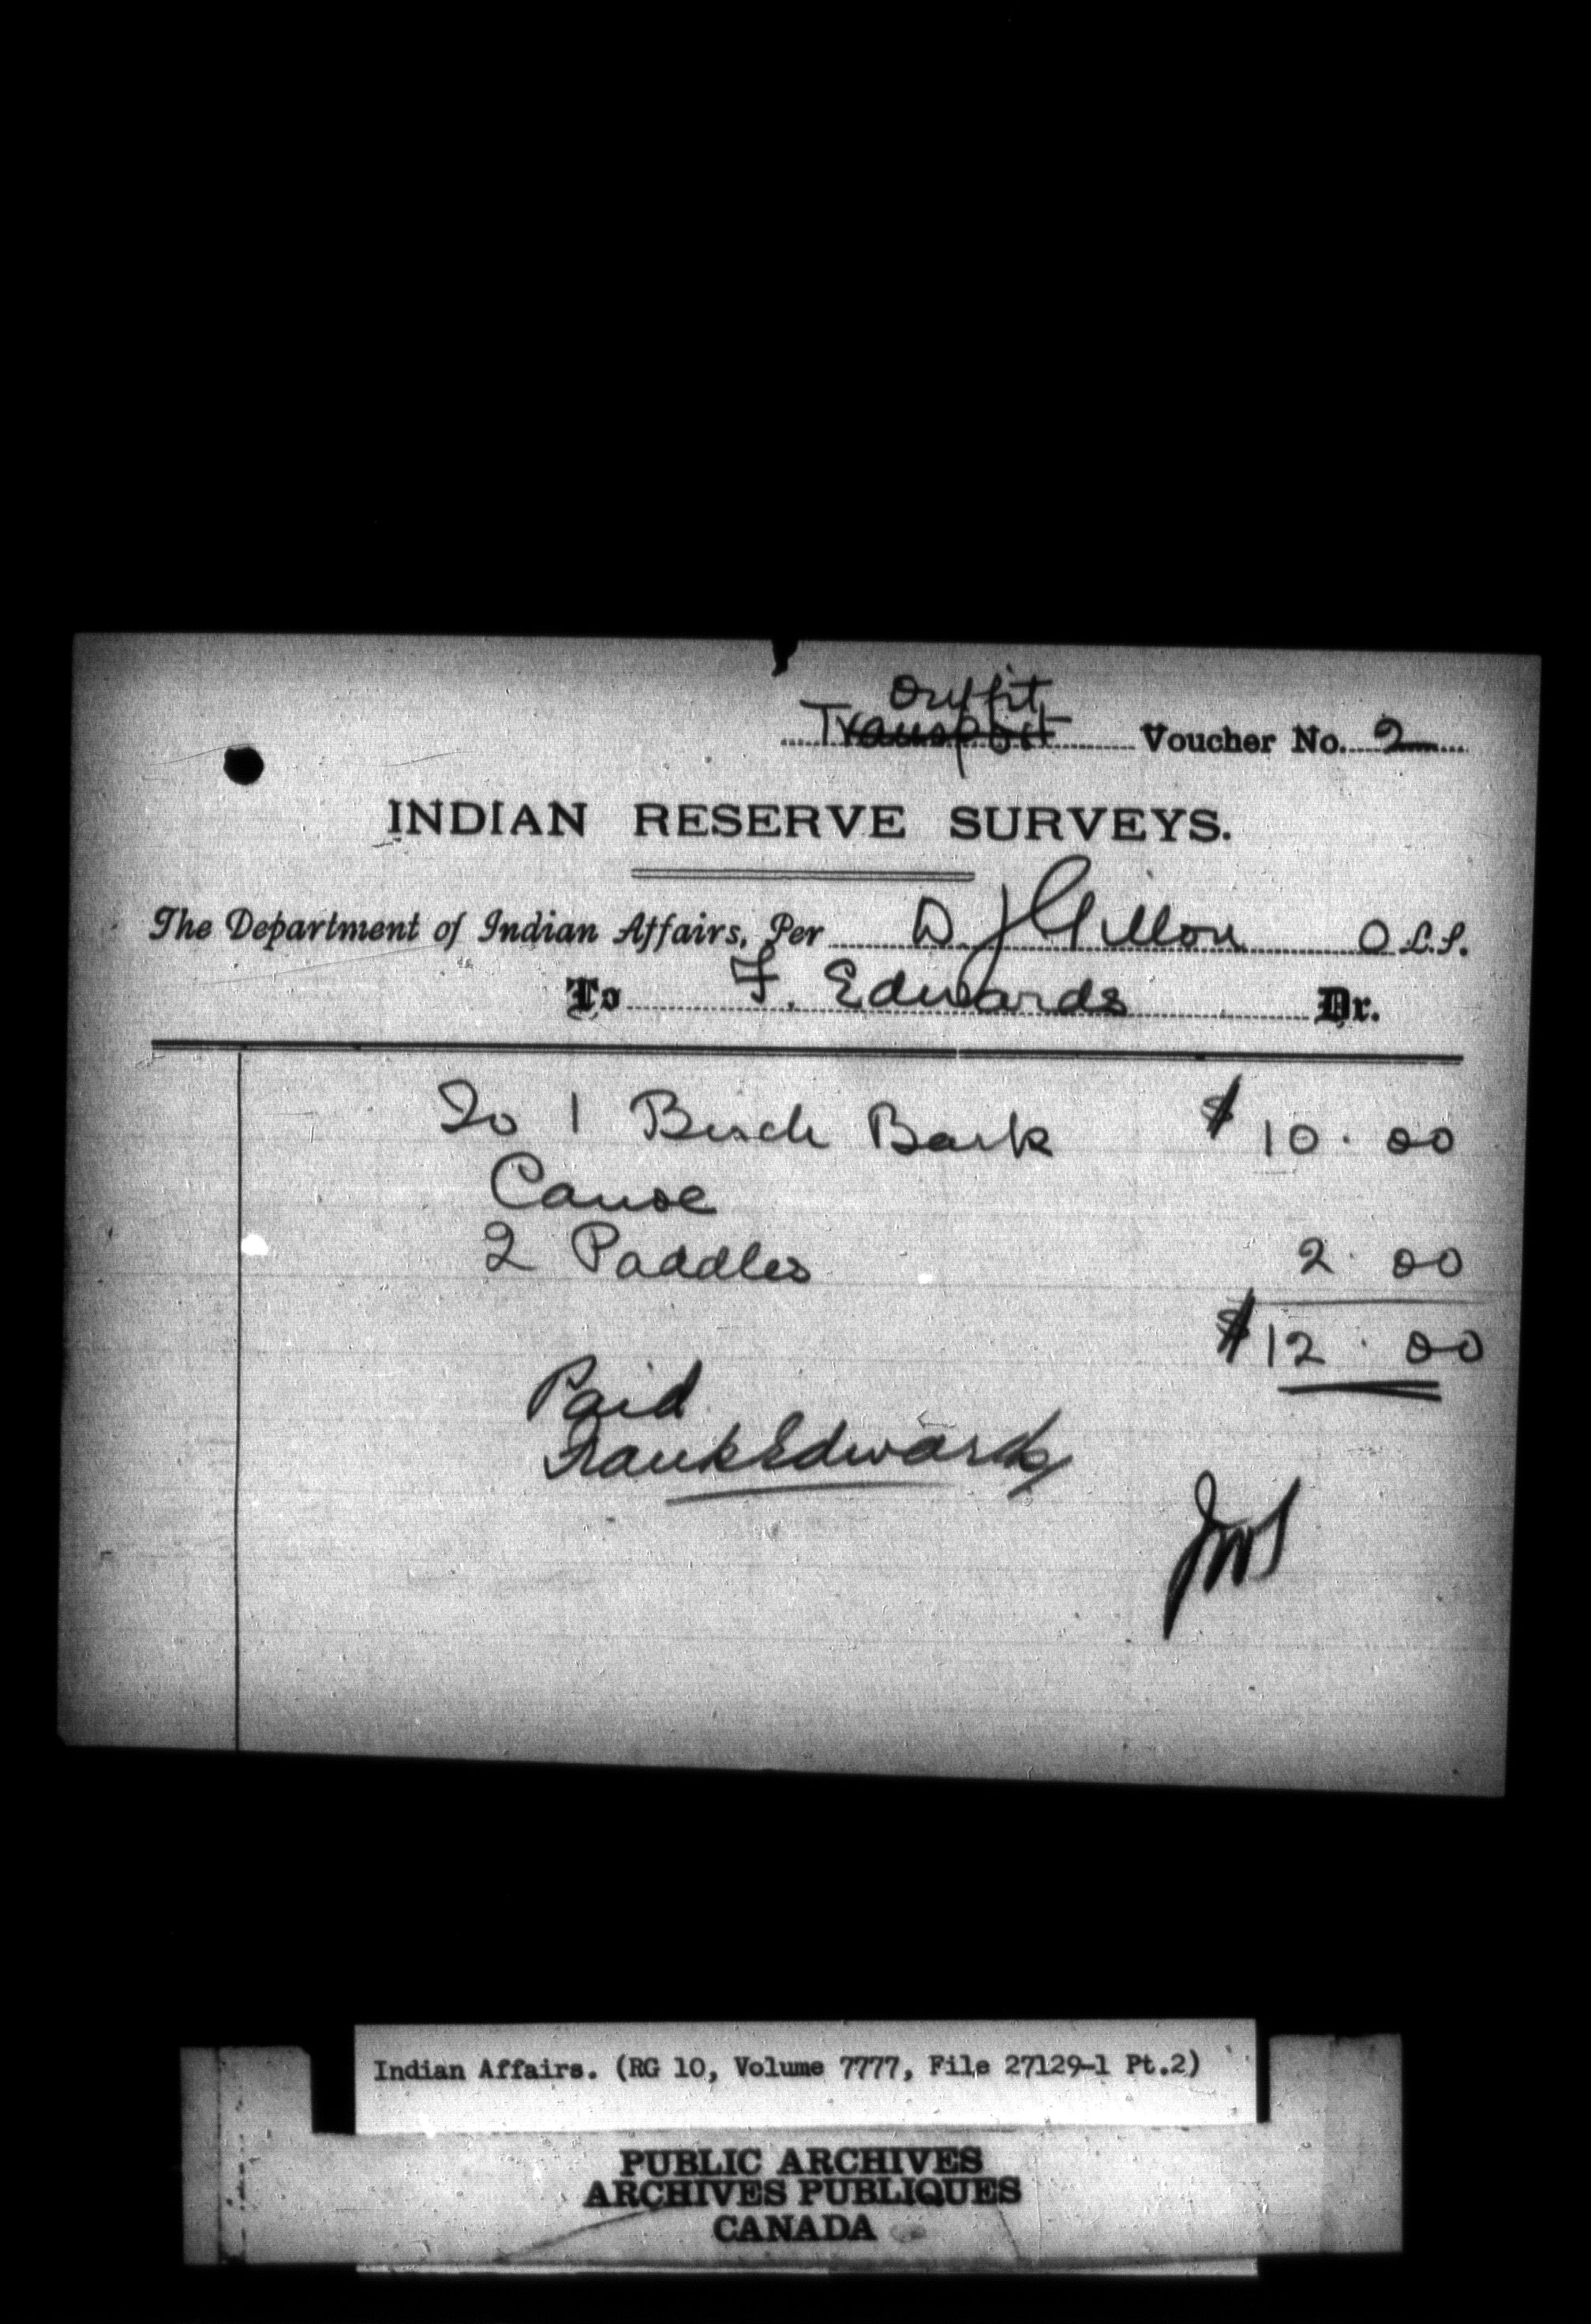 Outfit
Transport Voucher No. 2
INDIAN RESERVE SURVEYS.
The Department of Indian Affairs, Per D. J Gillon O L.S.
To F. Edwards Dr.
To 1 Birch Bark $ 10.00
Canoe
2 Paddles 2.00
$12.00
Paid
Frank Edwards
Indian Affairs. (RG 10, Volume 7777, File 27129-1 Pt.2)
PUBLIC ARCHIVES
ARCHIVES PUBLIQUES
CANADA